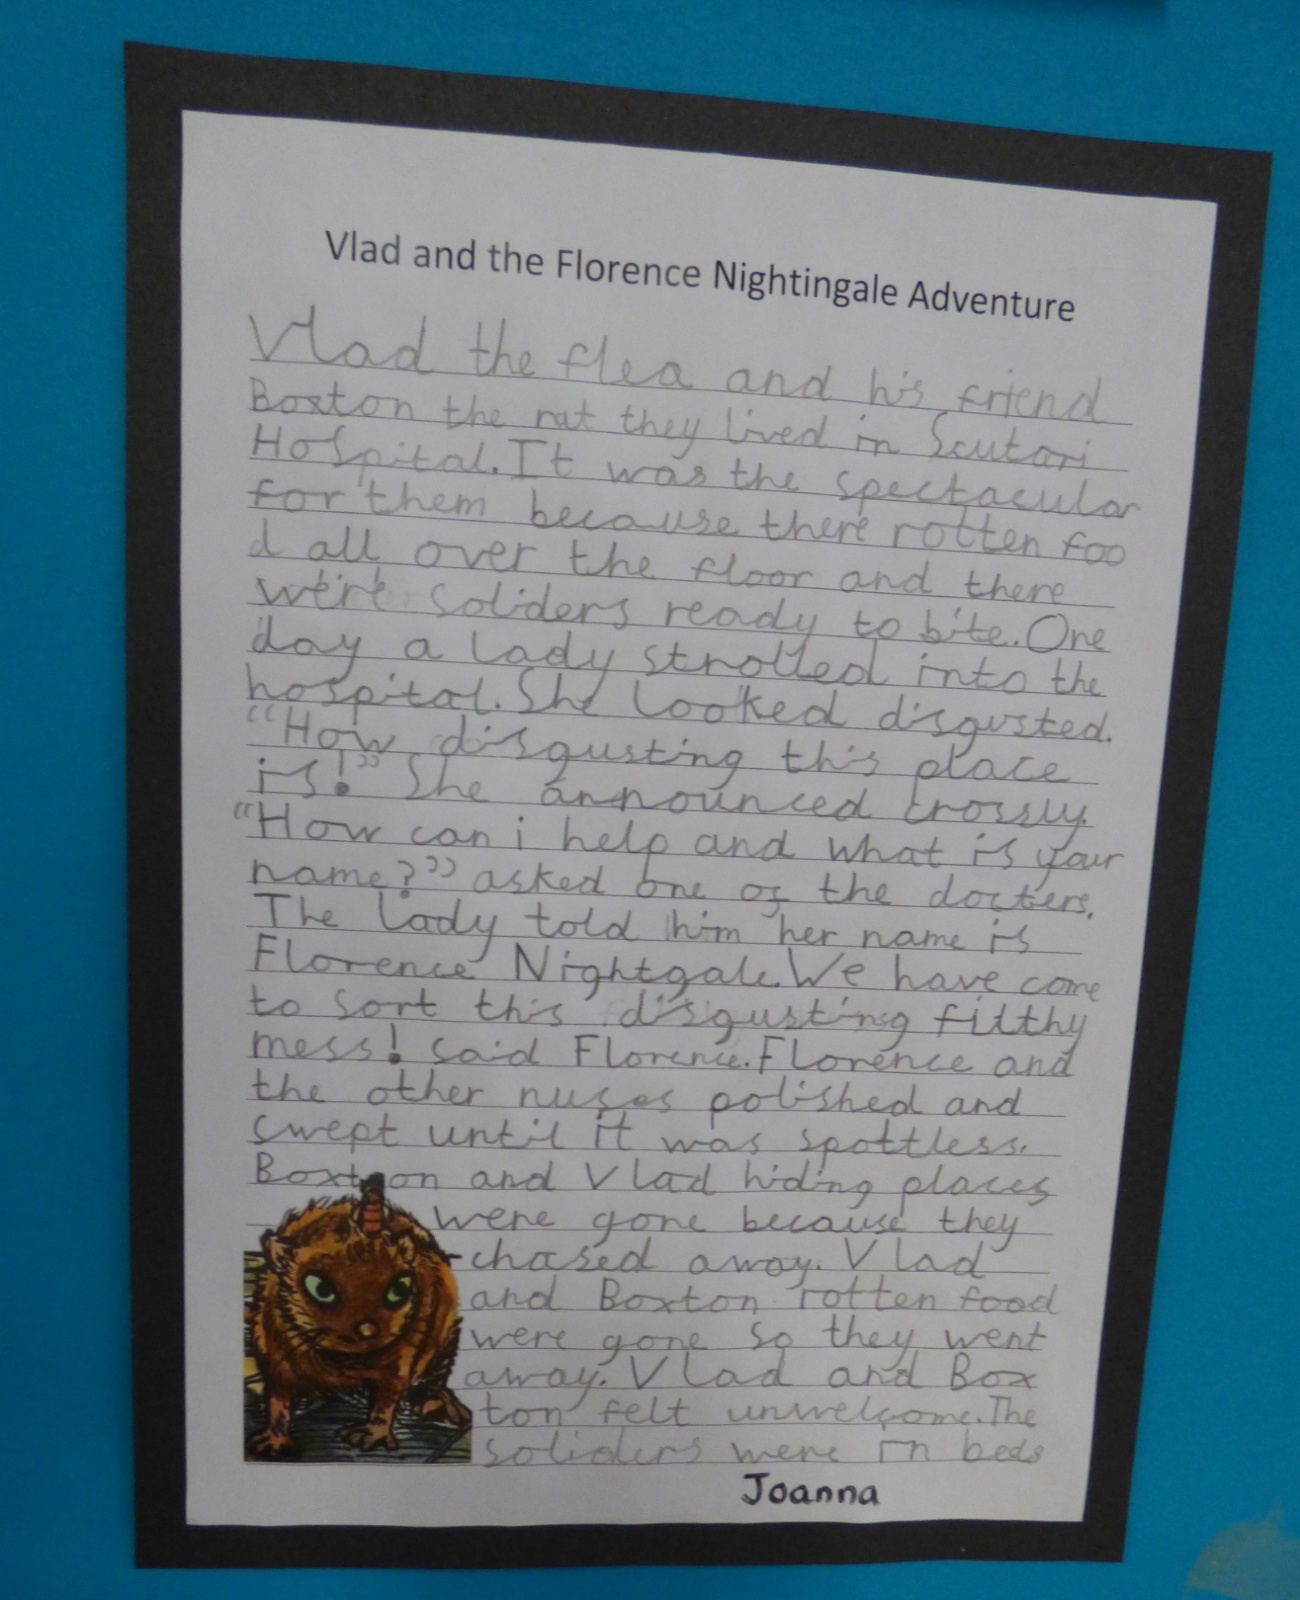 Vlad and the Florence Nightingale Adventure
Vlad the flea and his friend
Boxton the rat they lived in Scutari
Hospital. It was the spectacular
for them because there rotten foo
d all over the floor and there
were soliders ready to bite. One
day a lady strolled into the
hospital. She looked disgusted.
"How disgusting this place
is!" She announced crossly.
"How can i help and what is your
name?" asked one of the docters.
The lady told him her name is
Florence Nightgale. We have come
to sort this disgusting filthy
mess! said Florence. Florence and
the other nuses polished and
swept until it was spottless.
Boxton and Vlad hiding places
were gone because they
chased away. Vlad
and Boxton rotten food
were gone so they went
away. Vlad and Box
ton felt unwelcome. The
soliders were in beds
Joanna